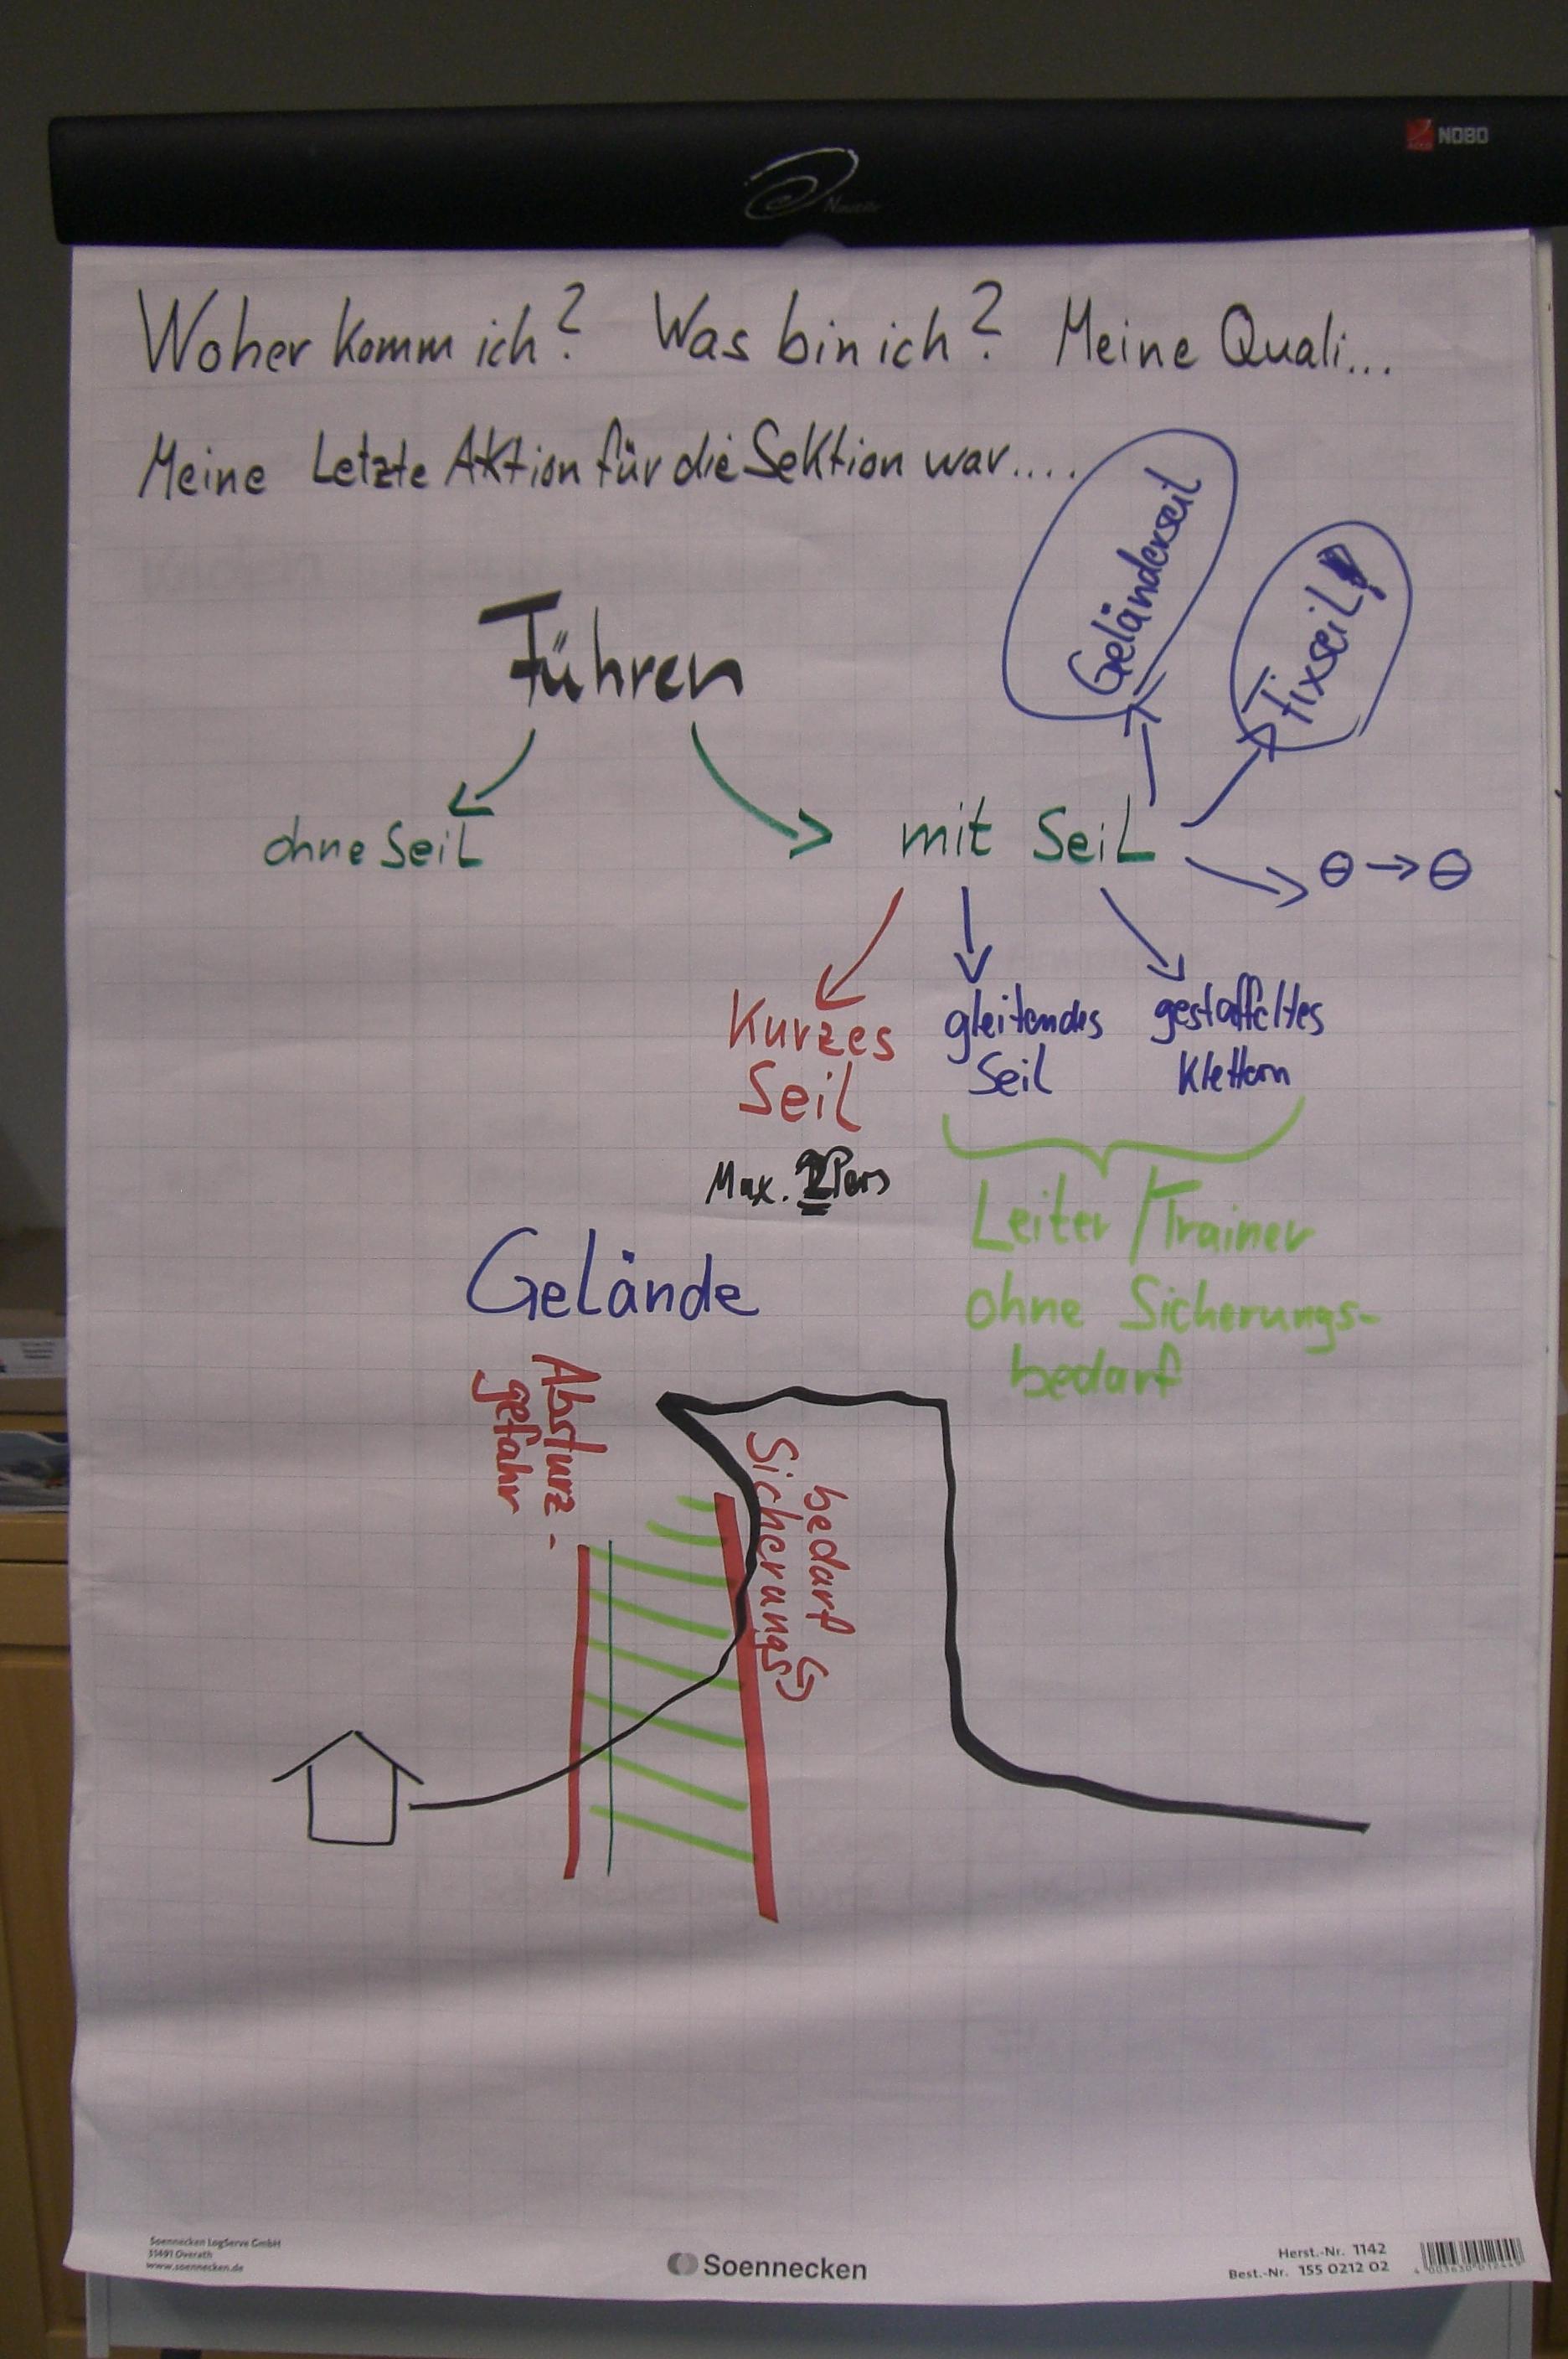 NOBO
Woher komm ich? Was bin ich? Meine Quali...
Meine Letzte Aktion für die Sektion war....
Geländerseil
Fixseil
Führen
ohne Seil
mit Seil
Kurzes
Seil
Max. 2 Pers
gleitendes
Seil
gestaffeltes
Klettern
Leiter/Trainer
ohne Sicherungs-
bedarf
Gelände
Absturz-
gefahr
Sicherungs
bedarf
Soennecken LogServe GmbH
51491 Overath
www.soennecken.de
Soennecken
Herst.-Nr. 1142
Best.-Nr. 155 0212 02